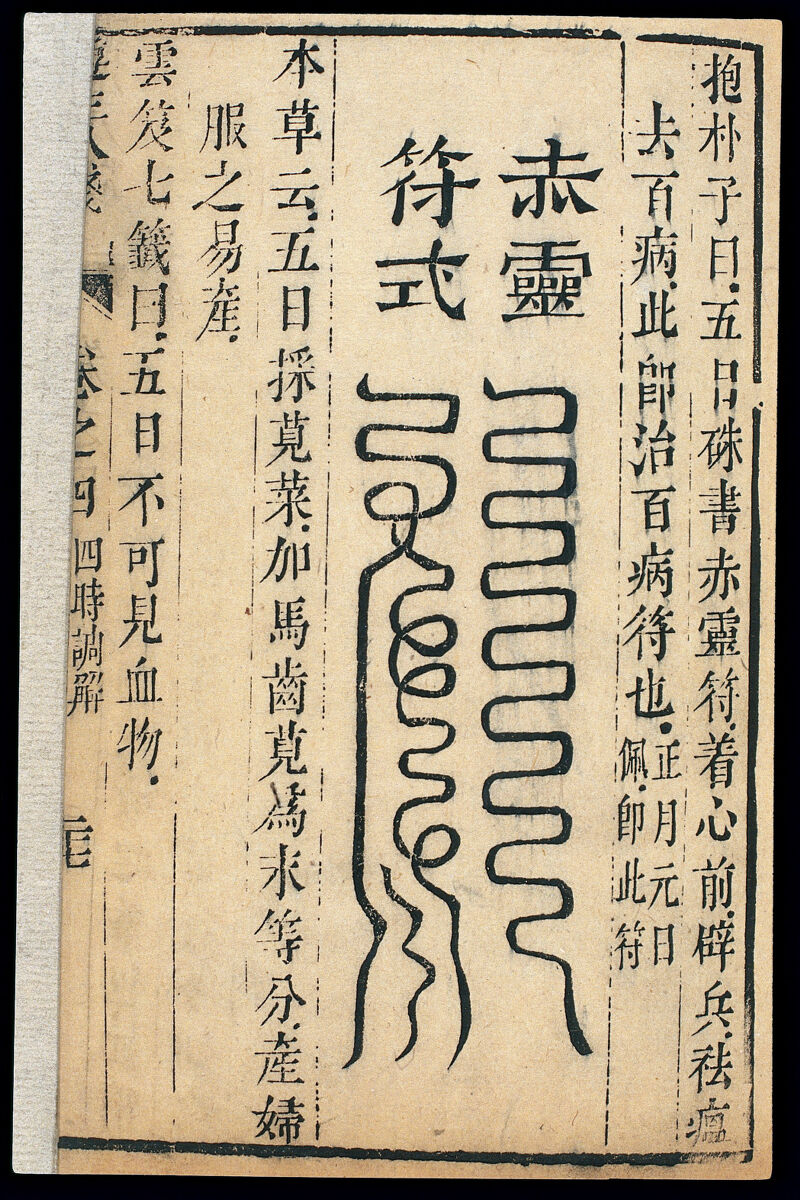 抱朴子曰五日硃書赤靈符着心前辟兵祛瘟
去百病此卽治百病符也正月元日
佩卽此符
赤靈
符式
本草云五日採莧菜加馬齒莧爲末等分產婦
服之易產
雲笈七籤曰五日不可見血物
卷之四 四時調解